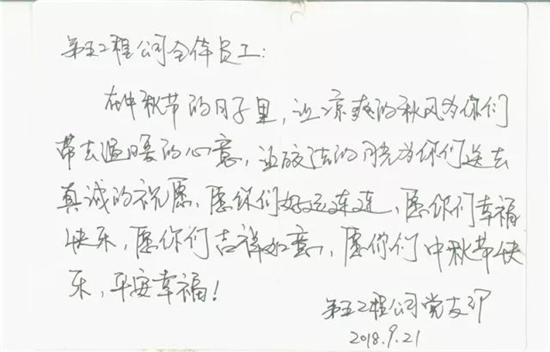 第五工程公司全体员工:
在中秋节的日子里,让凉爽的秋风为你们
带去温暖的心意,让皎洁的月光为你们送去
真诚的祝愿,愿你们好运连连,愿你们幸福
快乐,愿你们吉祥如意,愿你们中秋节快
乐,平安幸福!
第五工程公司党支部
2018.9.21